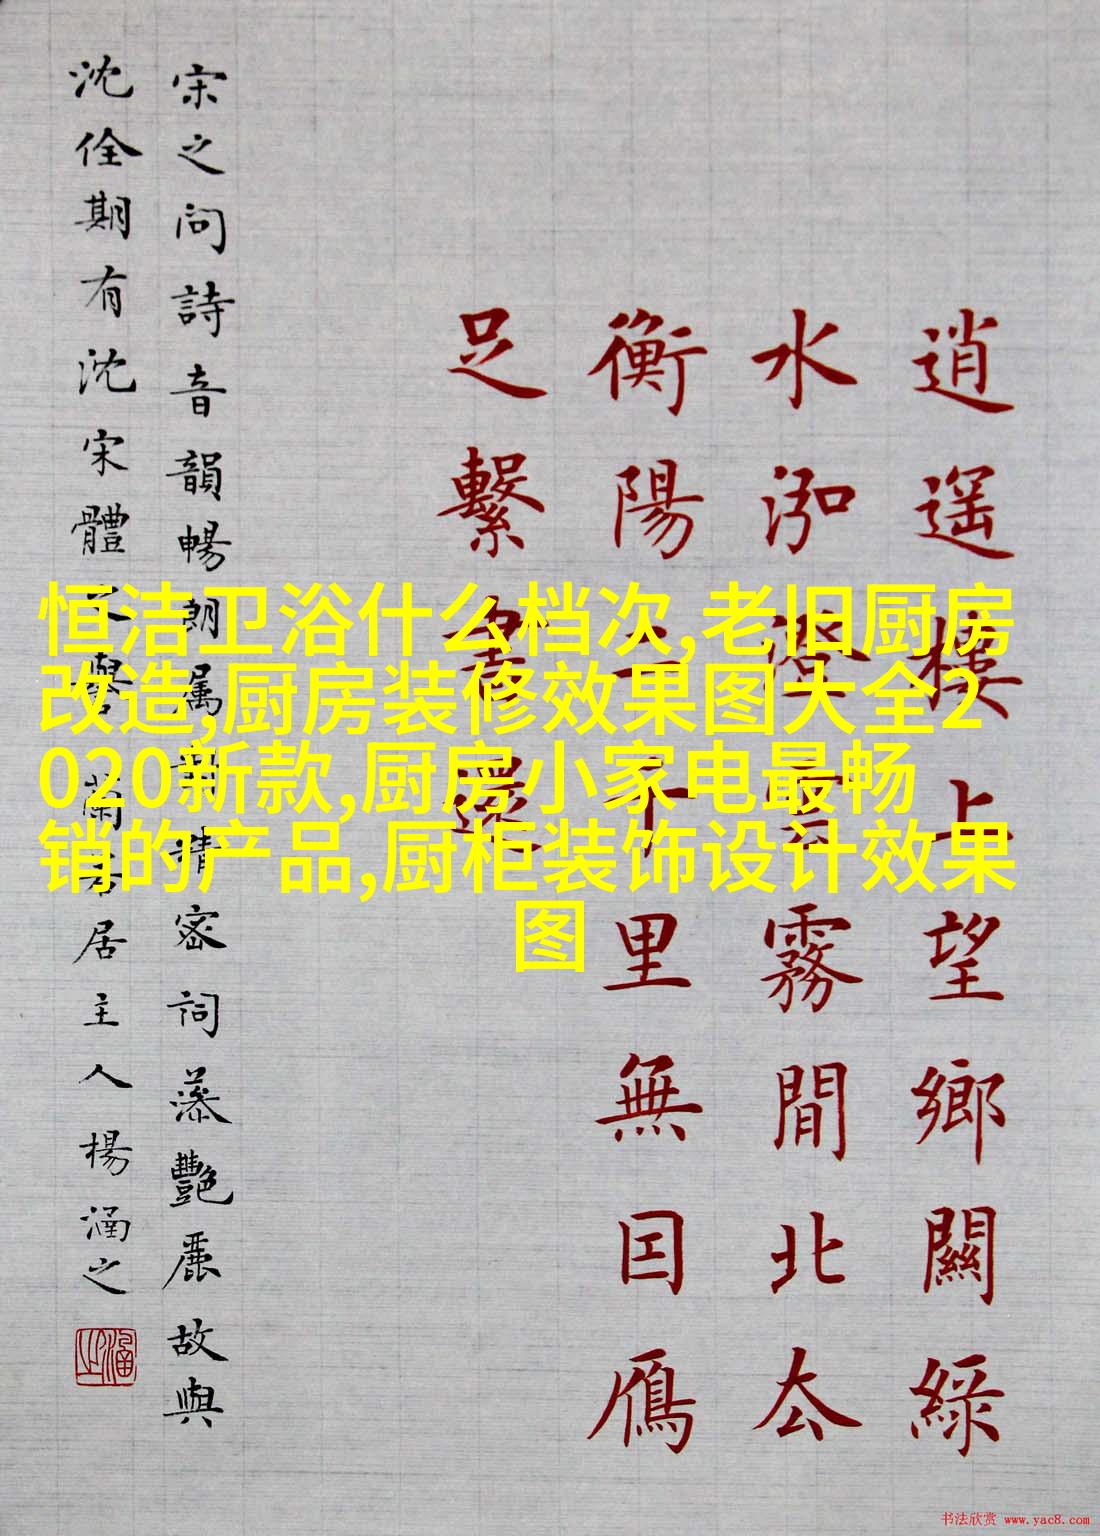 逍遥樓上望鄉關綠
水泓澄雲霧間北厺
衡陽二千里無囙雁
足繫書還
宋之问詩音韻暢朗属對精密詞藻艷麗故與
沈佺期有沈宋體之譽蘭若居主人楊涵之
恒洁卫浴什么档次,老旧厨房
改造,厨房装修效果图大全2
020新款,厨房小家电最畅
销的产品,厨柜装饰设计效果
图
书法欣赏 www.yac8.com